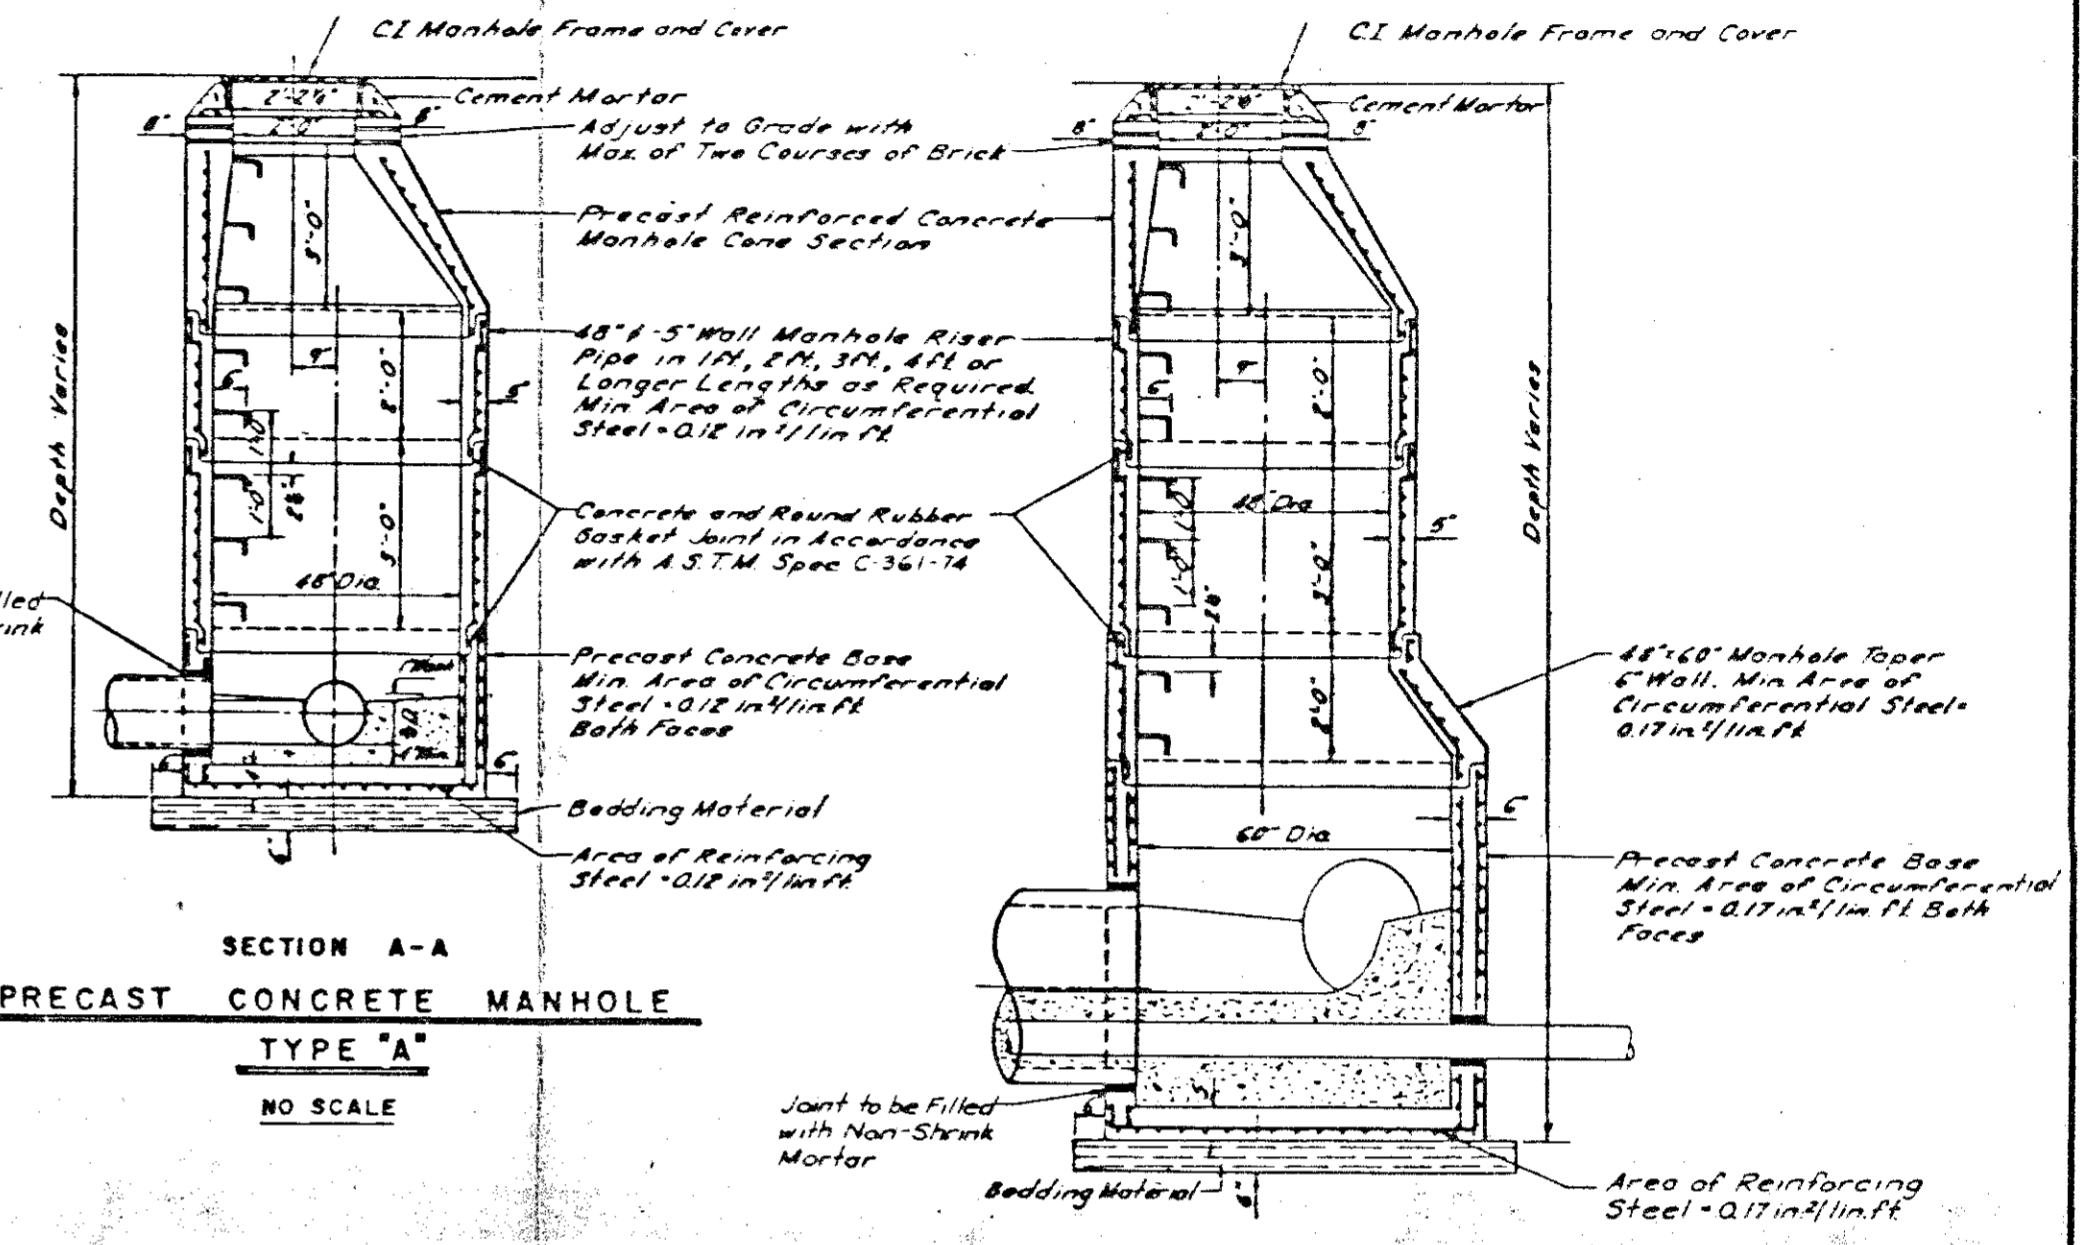 CI Manhole Frame and Cover
Cement Mortar
2'-2½"
8"
2'-0"
8"
Adjust to Grade with
Max. of Two Courses of Brick
Precast Reinforced Concrete
Manhole Cone Section
3'-0"
48"ϕ-5" Wall Manhole Riser
Pipe in 1ft., 2ft., 3ft., 4ft or
Longer Lengths as Required.
Min. Area of Circumferential
Steel = 0.12 in²/lin ft
9"
2'-0"
1'-0"
1'-0"
3'-0"
Depth Varies
Concrete and Round Rubber
Gasket Joint in Accordance
with A.S.T.M. Spec C-361-74
48" Dia.
Precast Concrete Base
Min. Area of Circumferential
Steel = 0.12 in²/lin ft
Both Faces
6"
6"
Bedding Material
6"
Area of Reinforcing
Steel = 0.12 in²/lin ft.
SECTION A-A
PRECAST CONCRETE MANHOLE
TYPE "A"
NO SCALE
CI Manhole Frame and Cover
Cement Mortar
2'-2½"
8"
2'-0"
8"
3'-0"
9"
6"
2'-0"
48" Dia
5"
1'-0"
1'-0"
3'-0"
2'-0"
Depth Varies
48"x60" Manhole Taper
6" Wall. Min. Area of
Circumferential Steel=
0.17 in²/lin.ft
60" Dia
6"
Precast Concrete Base
Min. Area of Circumferential
Steel = 0.17 in²/lin. ft. Both
Faces
Joint to be Filled
with Non-Shrink
Mortar
6"
5"
Bedding Material
6"
Area of Reinforcing
Steel = 0.17 in²/lin.ft